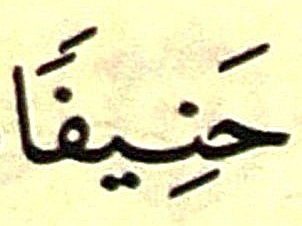 حَنِيفًا